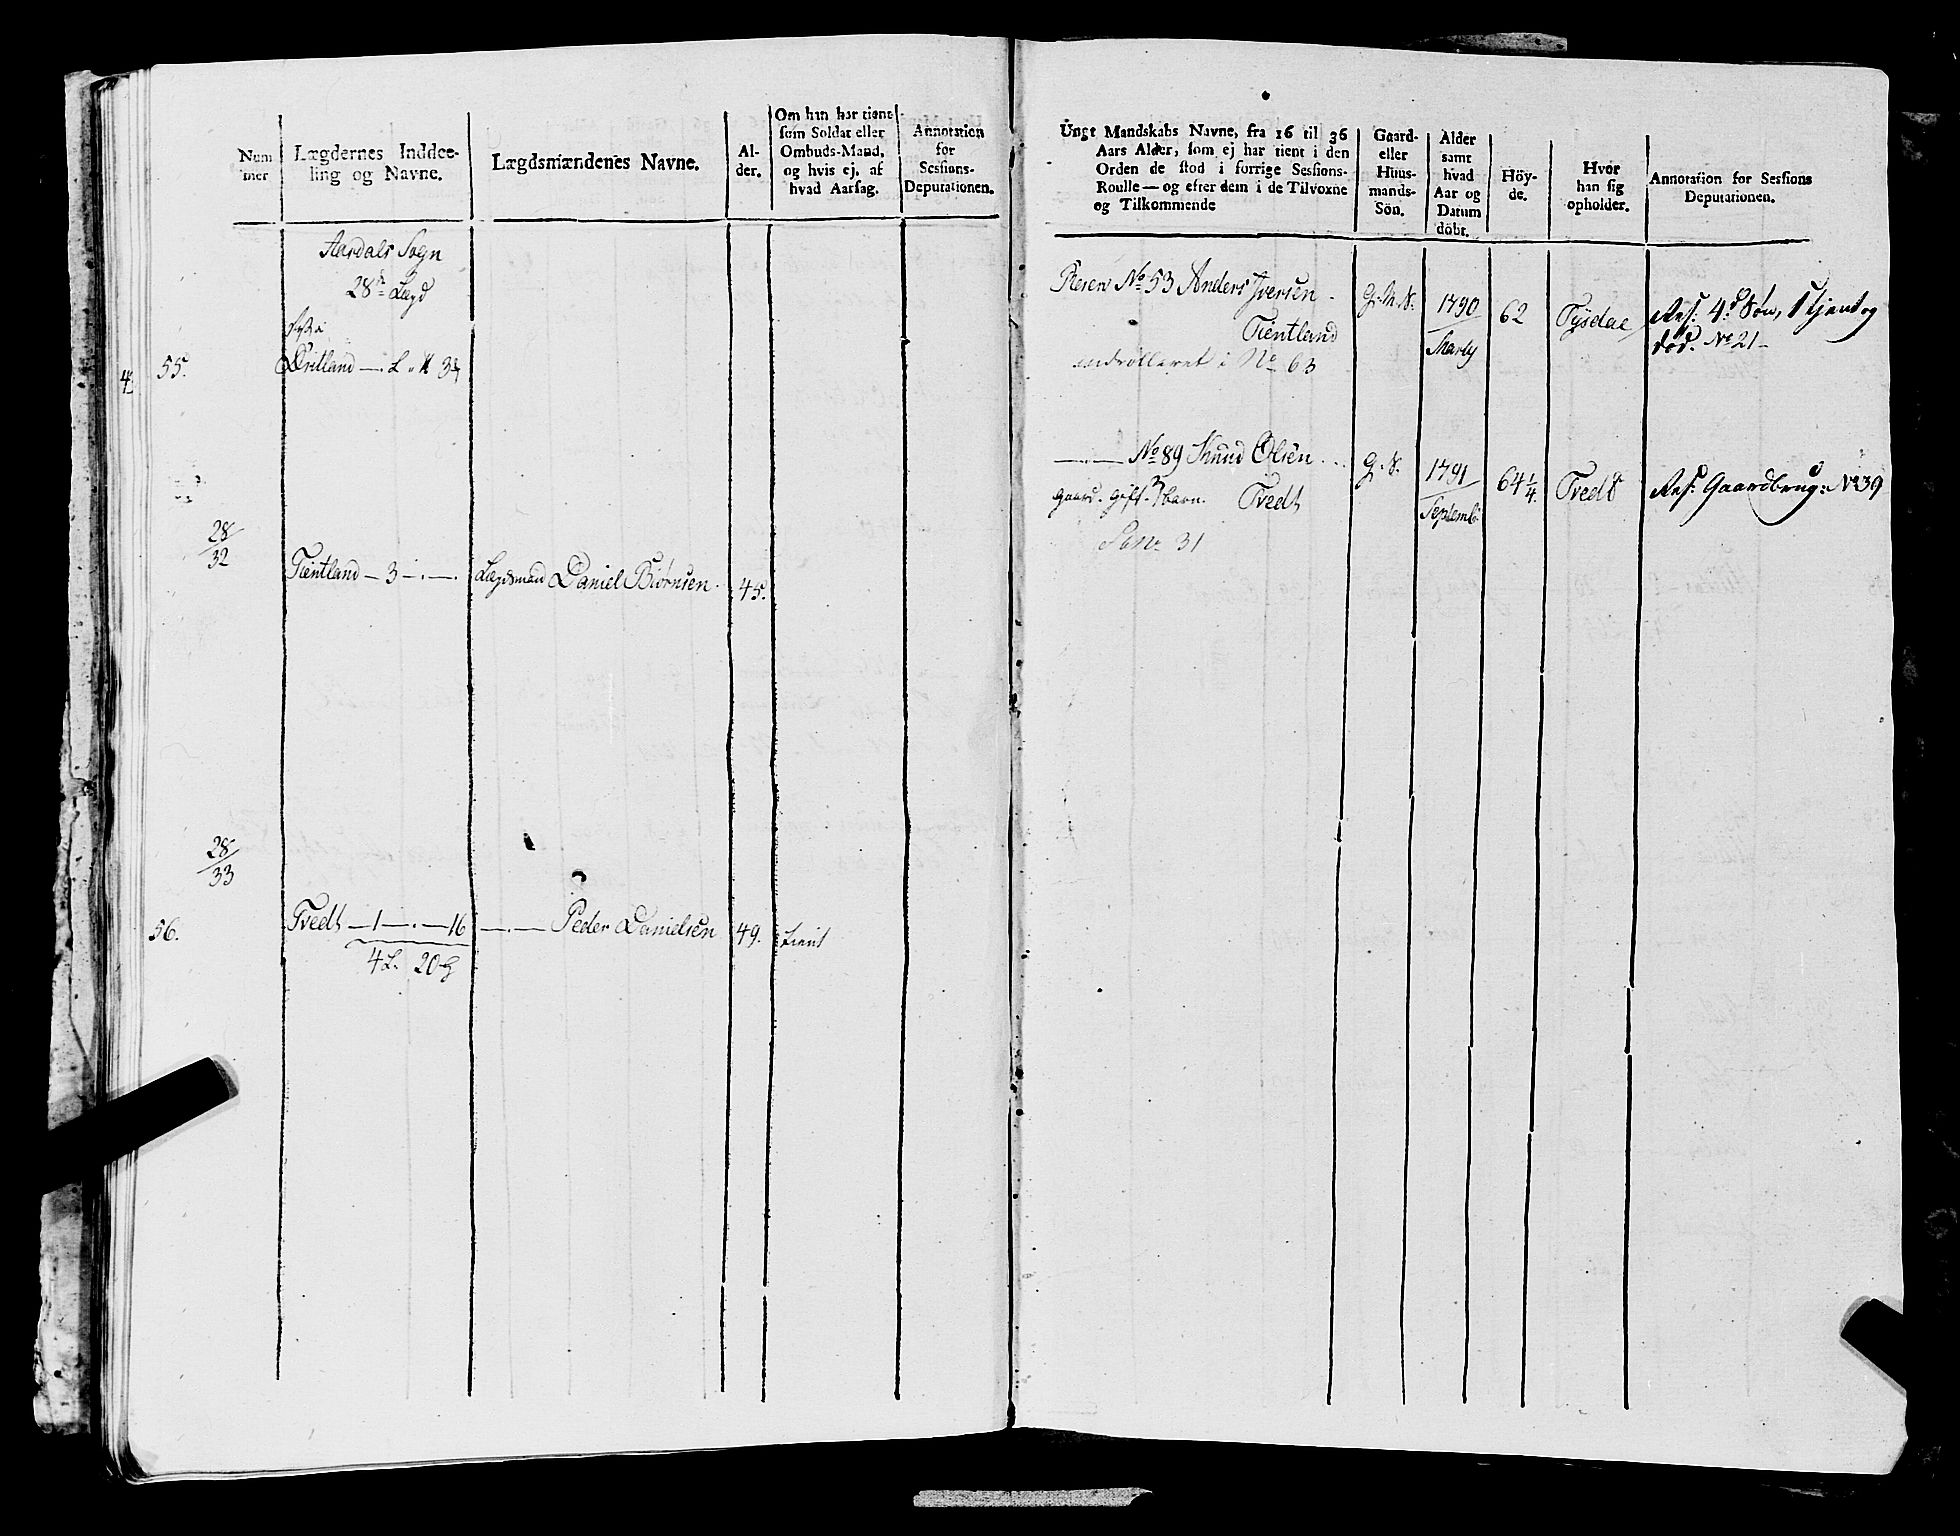 Num
mer
Lægdernes Inddee-
ling og Navne.
Lægdsmændenes Navne.
Al-
der.
Om han har tient
som Soldat eller
Ombuds-Mand,
og hvis ej, af
hvad Aarsag.
Annotation
for
Sessions-
Deputationen.
Aardals Sogn
28de Lægd
55.
Dritland —
28/32
Tientland — 3 —.—
Lægdsmand Daniel Biørnsen
45.
28/33
56.
Tvedt — 1 —.— 16
—.— Peder Danielsen
49.
tient
4 L. 20
Ungt Mandskabs Navne, fra 16 til 36
Aars Alder, som ej har tient i den
Orden de stod i forrige Sessions-
Roulle — og efter dem i de Tilvoxne
og Tilkommende
Gaard-
eller
Huus-
mands-
Sön.
Alder
samt
hvad
Aar og
Datum
döbt.
Höy-
de.
Hvor
han sig
opholder.
Annotation for Sessions
Deputationen.
No 53 Anders Iversen
G. M. S.
1790
Marty
62
Tysdal
Res: 4de Søn, 1 tjent og
død. No 21
Tientland
indrolleret i No 63
—.— No 89 Knud Olsen
G. S.
1791
Septemb
64 1/4
Tvedt
Res: Gaardbrug: No 39
gaard. gift. Barn. Tvedt
No 31